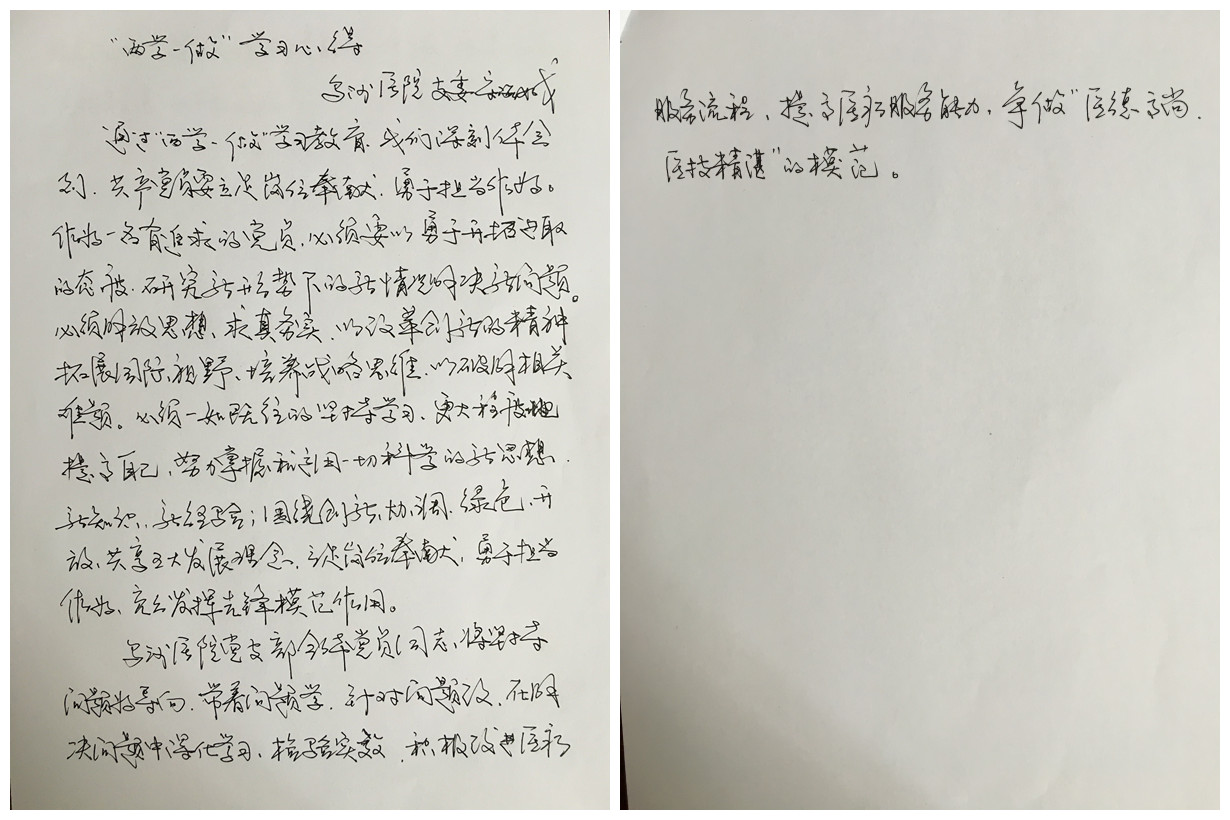 “两学一做”学习心得
乌沙医院支委
通过“两学一做”学习教育，我们深刻体会
到，共产党员要立足岗位奉献，勇于担当作为。
作为一名有追求的党员，必须要以勇于开拓进取
的态度，研究新形势下的新情况解决新问题。
必须解放思想、求真务实，以改革创新的精神
拓展国际视野、培养战略思维，以破解相关
难题。必须一如既往的坚持学习，更大程度地
提高自己，努力掌握和运用一切科学的新思想、
新知识、新经验；围绕创新、协调、绿色、开
放、共享五大发展理念，立足岗位奉献，勇于担当
作为，充分发挥先锋模范作用。
乌沙医院党支部全体党员同志，将坚持
问题为导向，带着问题学，针对问题改，在解
决问题中深化学习、检验实效，积极改进医疗
服务流程，提高医疗服务能力，争做“医德高尚、
医技精湛”的模范。